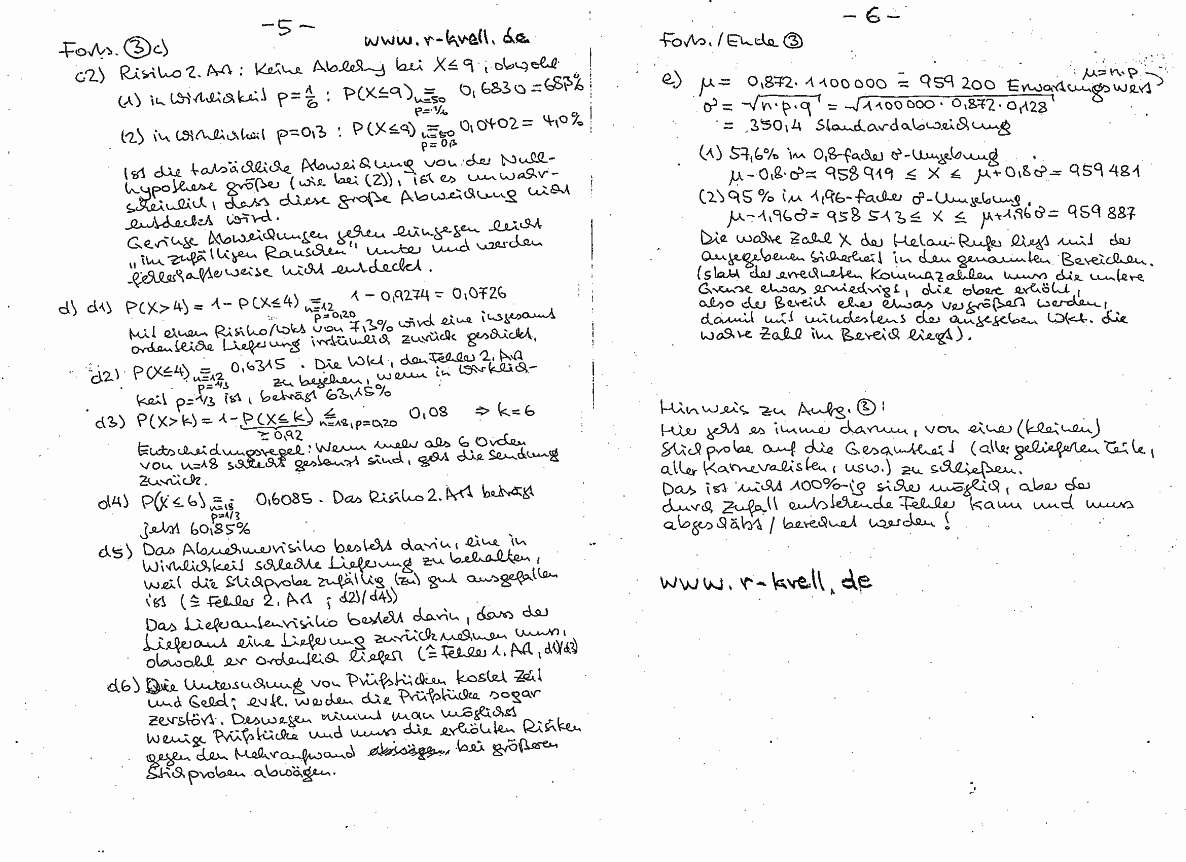 -5-
Forts. ③c)
www.r-krell.de
c2) Risiko 2. Art: Keine Ablehng bei X≤9, obwohl
(1) in Wirklichkeit p=1/6 : P(X≤9) = 0,6830 = 68,3%
n=50
p=1/6
(2) in Wirklichkeit p=0,3 : P(X≤9) = 0,0402 = 4,0%
n=50
p=0,3
Ist die tatsächliche Abweichung von der Null-
hypothese größer (wie bei (2)), ist es unwahr-
scheinlich, dass diese große Abweichung nicht
entdeckt wird.
Geringe Abweichungen gehen hingegen leicht
"im zufälligen Rauschen" unter und werden
fehlerhafterweise nicht entdeckt.
d) d1) P(X>4) = 1 - P(X≤4) = 1 - 0,9274 = 0,0726
n=12
p=0,20
Mit einem Risiko/Wkt von 7,3% wird eine insgesamt
ordentliche Lieferung irrtümlich zurück geschickt.
d2) P(X≤4) = 0,6315 . Die Wkt, den Fehler 2. Art
n=12
p=1/3
zu begehen, wenn in Wirklich-
keit p=1/3 ist, beträgt 63,15%
d3) P(X>k) = 1-P(X≤k) ≤ 0,08 ⇒ k=6
n=18, p=0,20
≈0,92
Entscheidungsregel: Wenn mehr als 6 Orden
von n=18 schlecht gestanzt sind, geht die Sendung
zurück.
d4) P(X≤6) = 0,6085 . Das Risiko 2. Art beträgt
n=18
p=1/3
jetzt 60,85%
d5) Das Abnehmerrisiko besteht darin, eine in
Wirklichkeit schlechte Lieferung zu behalten,
weil die Stichprobe zufällig (zu) gut ausgefallen
ist (≙ Fehler 2. Art ; d2)/d4))
Das Lieferantenrisiko besteht darin, dass der
Lieferant eine Lieferung zurücknehmen muss,
obwohl er ordentlich liefert (≙ Fehler 1. Art, d1)/d3)
d6) Die Untersuchung von Prüfstücken kostet Zeit
und Geld; evtl. werden die Prüfstücke sogar
zerstört. Deswegen nimmt man möglichst
wenige Prüfstücke und muss die erhöhten Risiken
gegen den Mehraufwand bei größeren
Stichproben abwägen.
-6-
Forts./Ende ③
e) μ = 0,872·1100000 = 959200 Erwartungswert
μ=n·p
σ = √n·p·q = √1100000·0,872·0,128
= 350,4 Standardabweichung
(1) 57,6% in 0,8-facher σ-Umgebung
μ-0,8·σ = 958919 ≤ X ≤ μ+0,8σ = 959481
(2) 95% in 1,96-facher σ-Umgebung.
μ-1,96σ = 958513 ≤ X ≤ μ+1,96σ = 959887
Die wahre Zahl X der Helau-Rufe liegt mit der
angegebenen Sicherheit in den genannten Bereichen.
(statt der errechneten Kommazahlen muss die untere
Grenze etwas erniedrigt, die obere erhöht,
also der Bereich eher etwas vergrößert werden,
damit mit mindestens der angegeben Wkt. die
wahre Zahl im Bereich liegt).
Hinweis zu Aufg. ③:
Hier geht es immer darum, von einer (kleinen)
Stichprobe auf die Gesamtheit (aller gelieferten Teile,
aller Karnevalisten, usw.) zu schließen.
Das ist nicht 100%-ig sicher möglich, aber der
durch Zufall entstehende Fehler kann und muss
abgeschätzt / berechnet werden!
www.r-krell.de